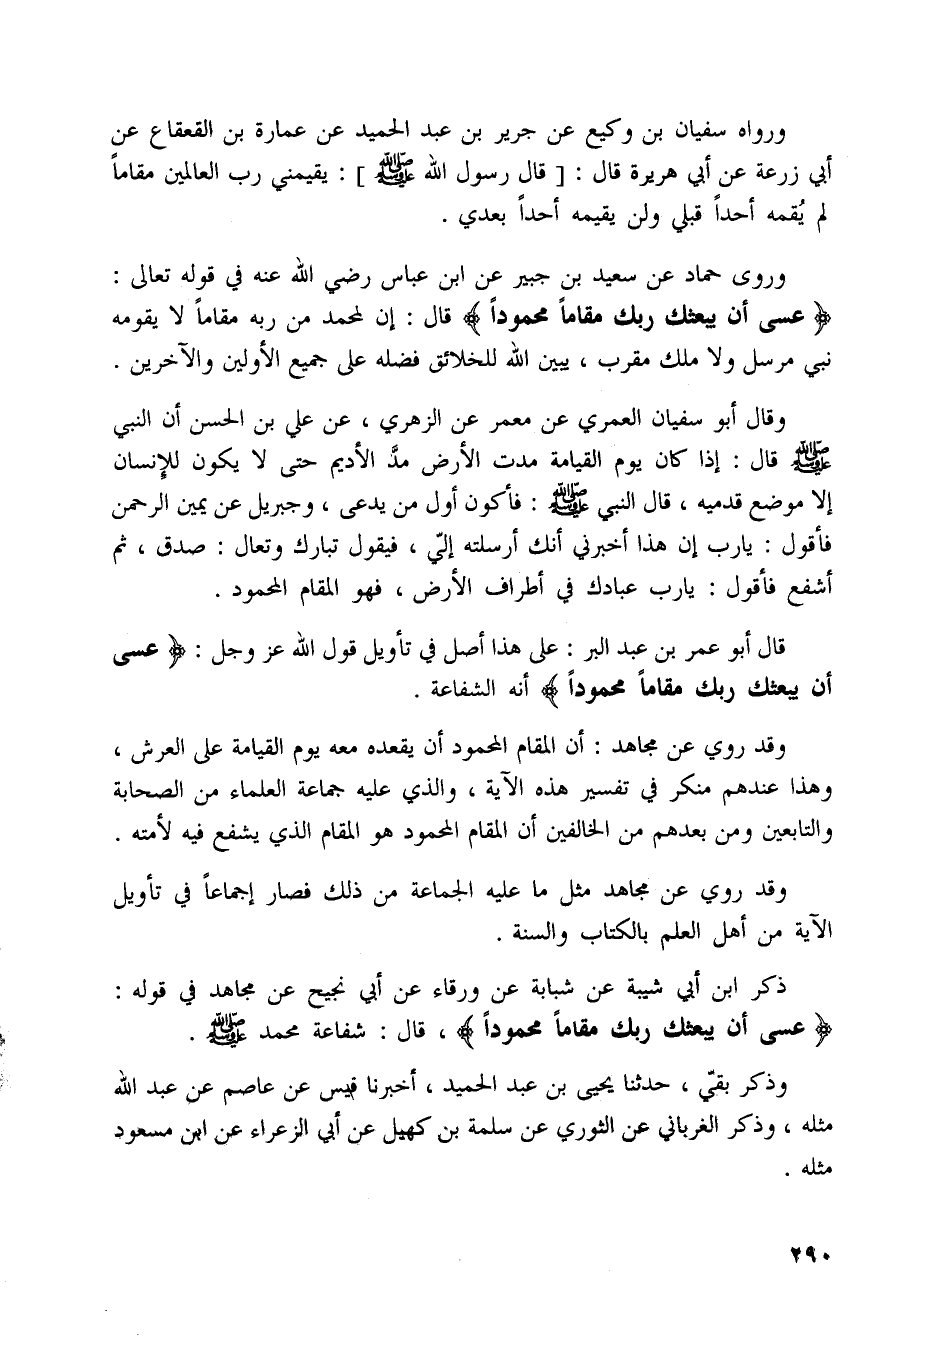 ورواه سفيان بن وكيع عن جرير بن عبد الحميد عن عمارة بن القعقاع عن
أبي زرعة عن أبي هريرة قال : [ قال رسول الله ﷺ ] : يقيمني رب العالمين مقاماً
لم يُقمه أحداً قبلي ولن يقيمه أحداً بعدي .
وروى حماد عن سعيد بن جبير عن ابن عباس رضي الله عنه في قوله تعالى :
﴿ عسى أن يبعثك ربك مقاماً محموداً ﴾ قال : إن لمحمد من ربه مقاماً لا يقومه
نبي مرسل ولا ملك مقرب ، يبين الله للخلائق فضله على جميع الأولين والآخرين .
وقال أبو سفيان العمري عن معمر عن الزهري ، عن علي بن الحسن أن النبي
ﷺ قال : إذا كان يوم القيامة مدت الأرض مدَّ الأديم حتى لا يكون للإنسان
إلا موضع قدميه ، قال النبي ﷺ : فأكون أول من يدعى ، وجبريل عن يمين الرحمن
فأقول : يارب إن هذا أخبرني أنك أرسلته إليّ ، فيقول تبارك وتعال : صدق ، ثم
أشفع فأقول : يارب عبادك في أطراف الأرض ، فهو المقام المحمود .
قال أبو عمر بن عبد البر : على هذا أصل في تأويل قول الله عز وجل : ﴿ عسى
أن يبعثك ربك مقاماً محموداً ﴾ أنه الشفاعة .
وقد روي عن مجاهد : أن المقام المحمود أن يقعده معه يوم القيامة على العرش ،
وهذا عندهم منكر في تفسير هذه الآية ، والذي عليه جماعة العلماء من الصحابة
والتابعين ومن بعدهم من الخالفين أن المقام المحمود هو المقام الذي يشفع فيه لأمته .
وقد روي عن مجاهد مثل ما عليه الجماعة من ذلك فصار إجماعاً في تأويل
الآية من أهل العلم بالكتاب والسنة .
ذكر ابن أبي شيبة عن شبابة عن ورقاء عن أبي نجيح عن مجاهد في قوله :
﴿ عسى أن يبعثك ربك مقاماً محموداً ﴾ ، قال : شفاعة محمد ﷺ .
وذكر بقيّ ، حدثنا يحيى بن عبد الحميد ، أخبرنا قيس عن عاصم عن عبد الله
مثله ، وذكر الغرباني عن الثوري عن سلمة بن كهيل عن أبي الزعراء عن ابن مسعود
مثله .
٢٩٠